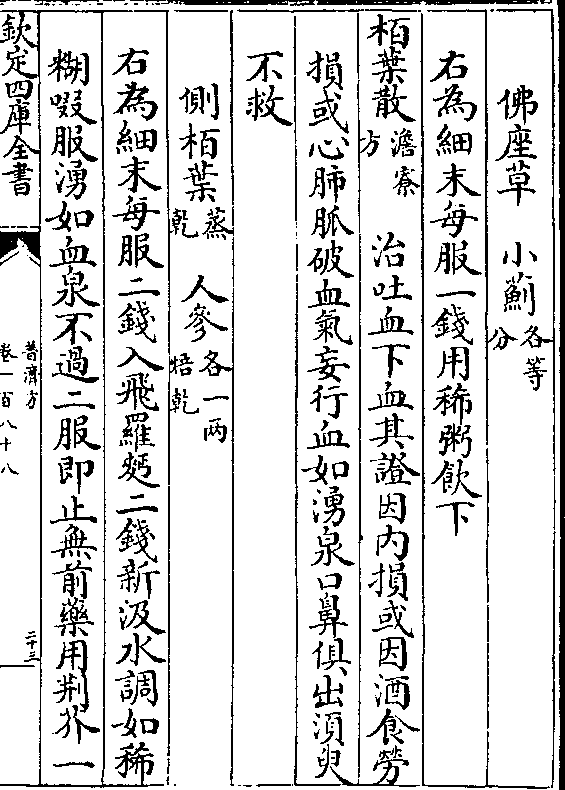 佛座草　小薊各等分
右為細末每服一錢用稀粥飲下
栢葉散澹寮方　治吐血下血其證因内損或因酒食勞
損或心肺脈破血氣妄行血如湧泉口鼻俱出須臾
不救
側栢葉蒸乾　人參各一两焙乾
右為細末每服二錢入飛羅麪二錢新汲水調如稀
糊啜服湧如血泉不過二服即止無前藥用荆芥一
欽定四庫全書
普濟方
卷一百八十八
二十三